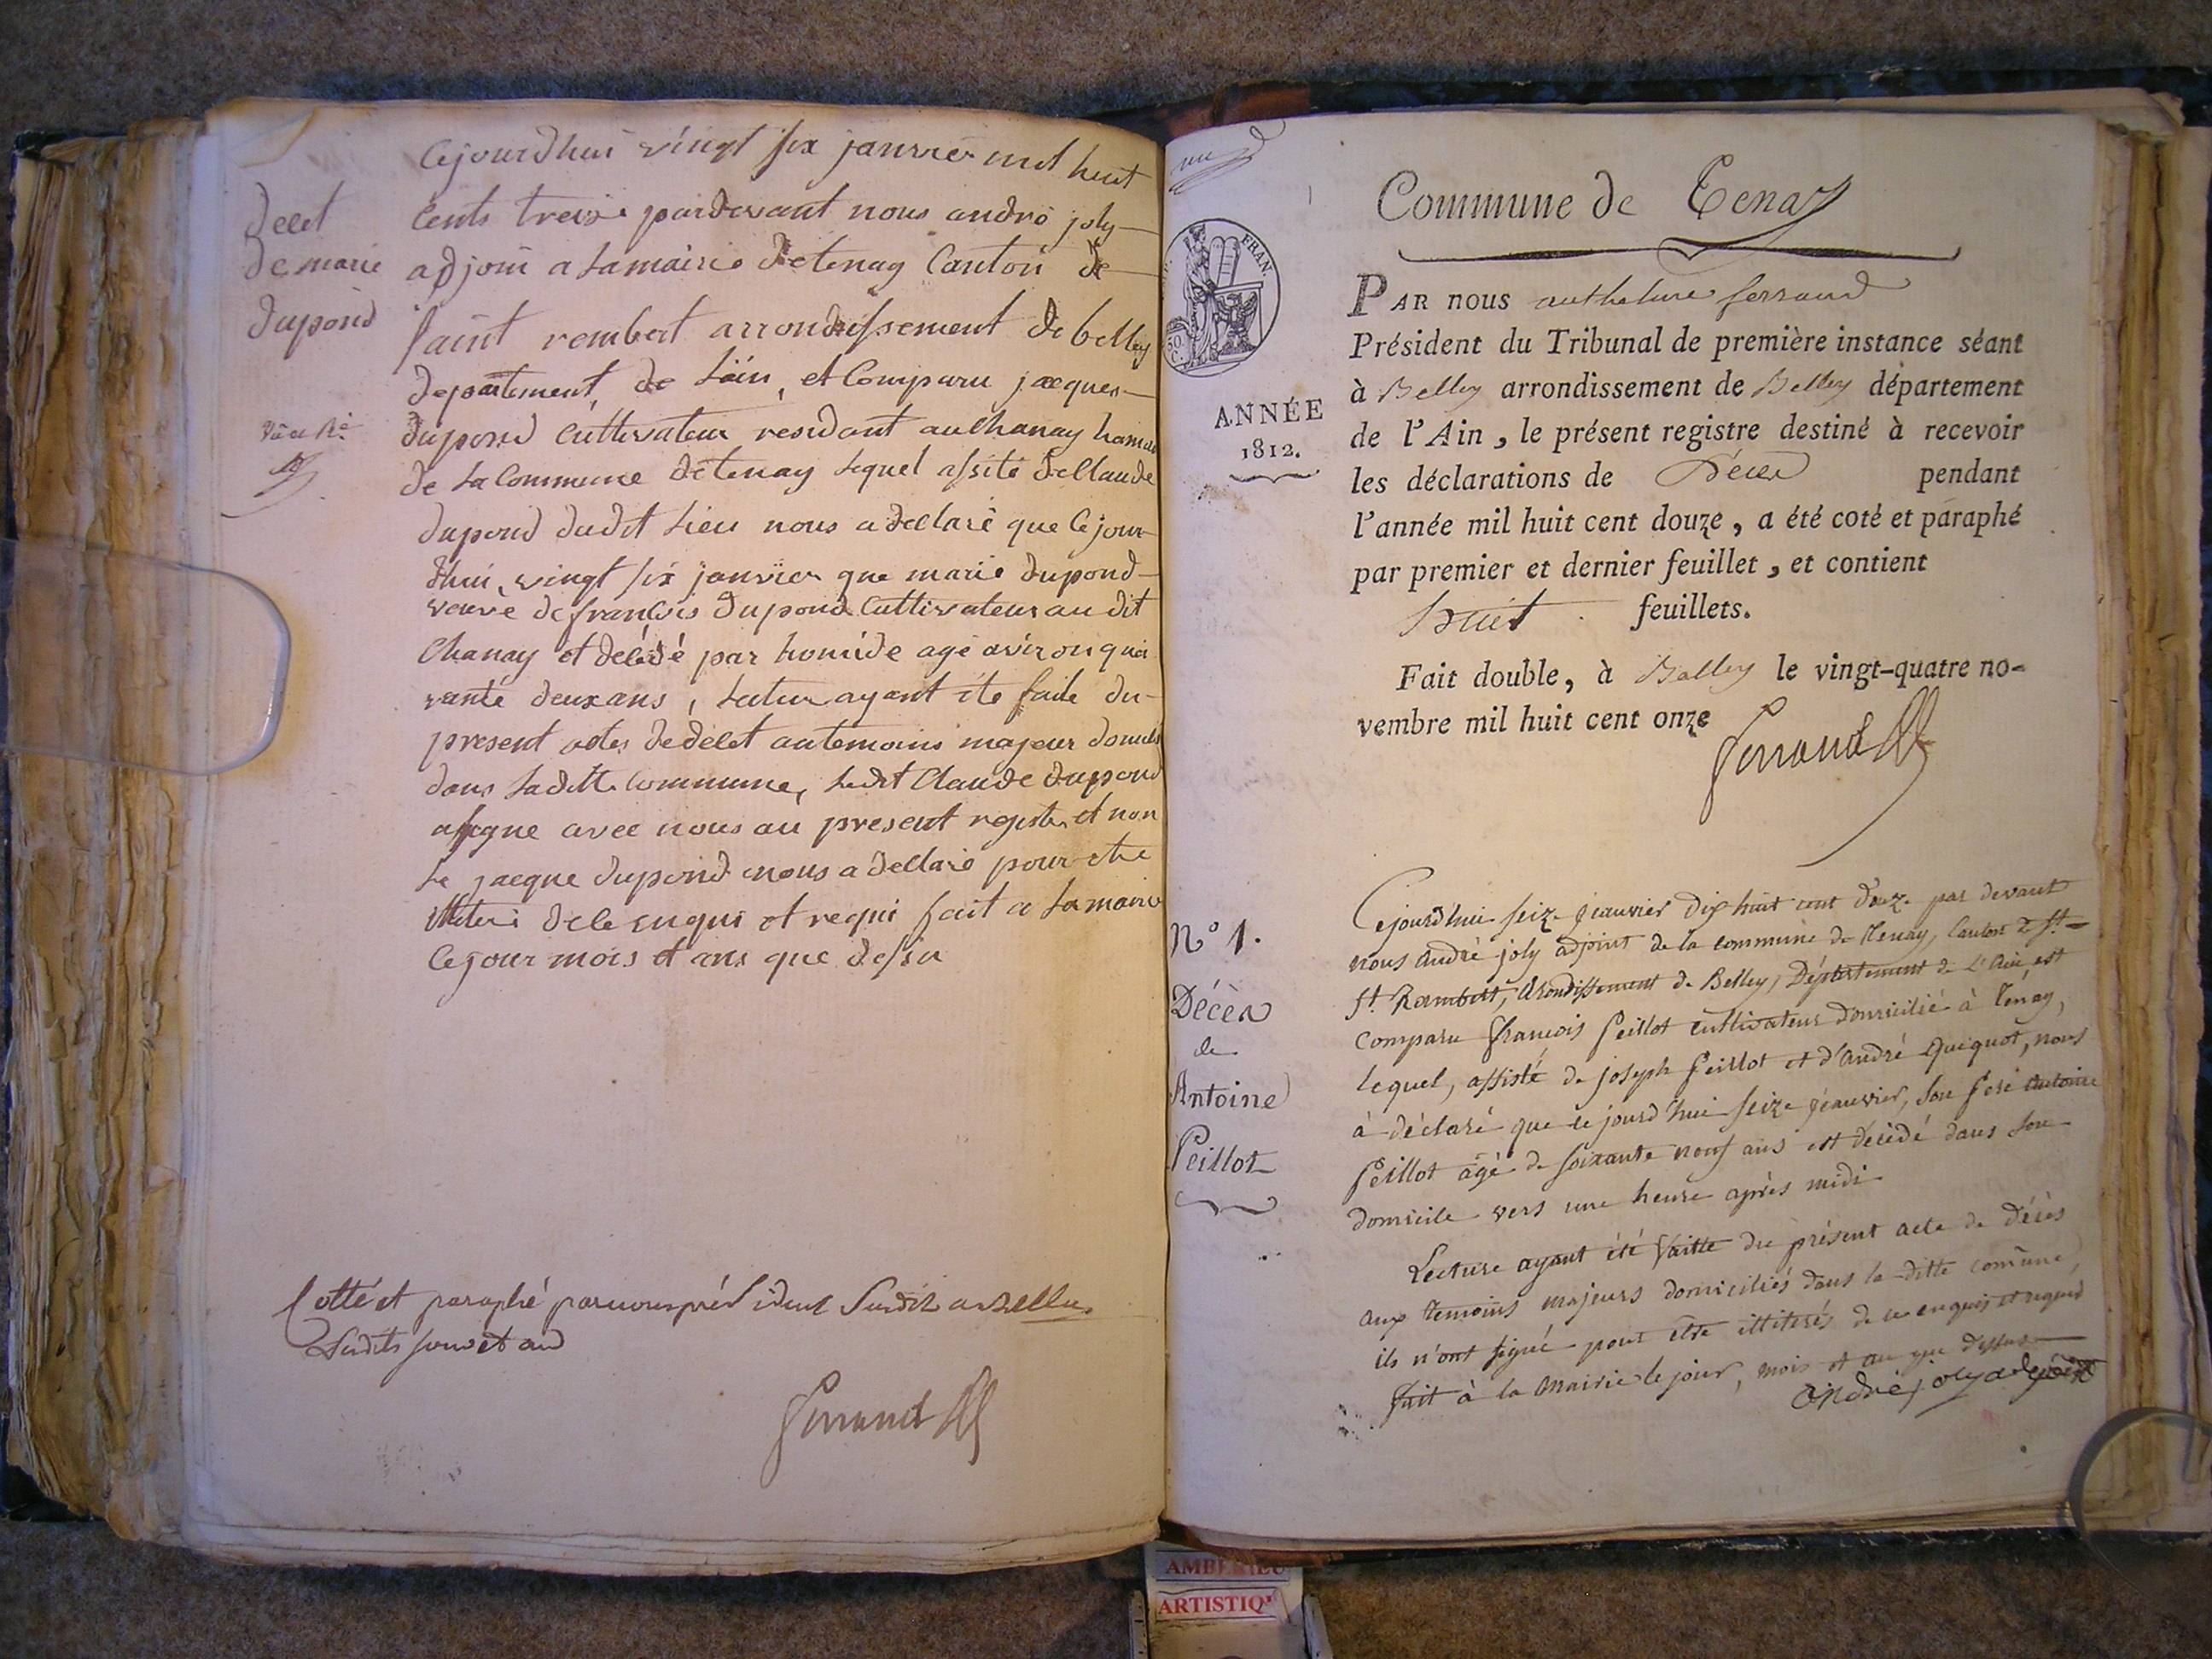 Cejourdhui vingt six janvier mil huit
cents treize pardevant nous andré joly
adjoin a lamairie detenay Canton de
saint rembert arrondissement de belley
departement, de Lain, et Comparu jacques
dupond cultivateur residant auChanay hamau
de La Commune detenay Lequel assité deClaude
dupond dudit Lieu nous a declaré que Cejour
dhui, vingt six janvier que marie dupond
veuve de francois dupond Cultivateur au dit
Chanay et décédé par homide agé aviron qua
rante deux ans, Lectur ayant été faite du
present actes dedelet autemoins majeur domicil
dans Laditte Commune, Ledit Claude dupond
asigne avec nous au present registre et non
Le jacque dupond nous a declaré pour etre
illiteré dele enqui et requi fait a Lamairie
Cejour mois et ans que dessu
decet
de marie
dupond
Cotté et paraphé parnous président Susdit a Belley
Susdits jour et and
Ferrand
Commune de Tenay
PAR nous anthelme ferrand
Président du Tribunal de première instance séant
à Belley arrondissement de Belley département
de l'Ain, le présent registre destiné à recevoir
les déclarations de Décès pendant
l'année mil huit cent douze, a été coté et paraphé
par premier et dernier feuillet, et contient
huit feuillets.
Fait double, à Belley le vingt-quatre no-
vembre mil huit cent onze
Ferrand
FRAN.
50
C.
ANNÉE
1812.
N° 1.
Décès
de
Antoine
Peillot
Cejourd'hui seize jeanvier dix huit cent douze par devant
nous André joly adjoint de la commune de Tenay, Canton de St.
St. Rambert, Arondissement de Belley, Département de L'Ain, est
comparu francois Peillot cultivateur domicilié à Ténay,
lequel, assisté de joseph Peillot et d'André Quiquot, nous
à déclaré que ce jourd'hui seize jeanvier, son Père Antoine
Peillot âgé de soixante neuf ans est décédé dans son
domicile vers une heure après midi
Lecture ayant été faitte du présent acte de Décès
aux temoins majeurs domiciliés dans la ditte comune,
ils n'ont signé pour etre illiterés de ce enquis et requis
fait à la Mairie le jour, mois et an que dessus
andré joly adjoint
AMBERIEU
ARTISTIQ